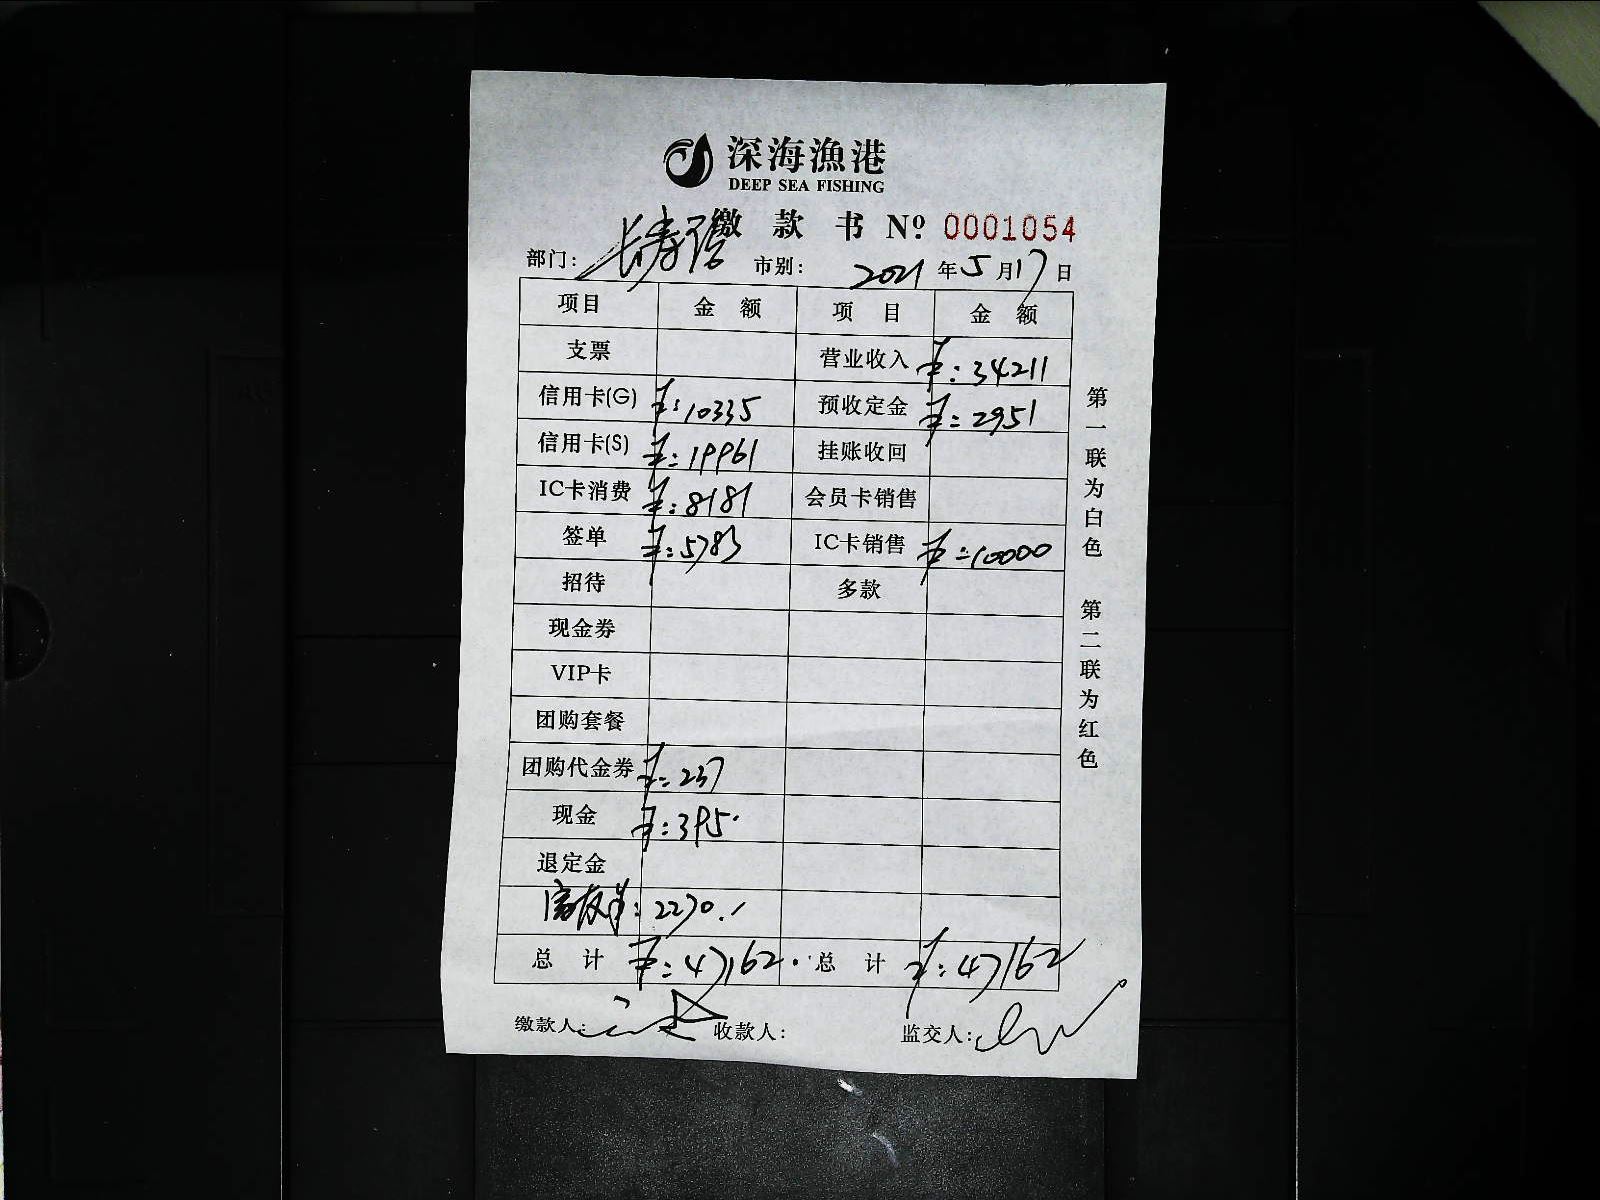 深海漁港
DEEP SEA FISHING
缴款书 Nº 0001054
部门: 长寿路 市别: 2021年5月17日
项目 金额 项目 金额
支票 营业收入 ¥:34211
信用卡(G) ¥:10335 预收定金 ¥:2951
信用卡(S) ¥:19961 挂账收回
IC卡消费 ¥:8181 会员卡销售
签单 ¥:5783 IC卡销售 ¥:10000
招待 多款
现金券
VIP卡
团购套餐
团购代金券 ¥:237
现金 ¥:395.
退定金
:2270.
总计 ¥:47162. 总计 ¥:47162
缴款人: 收款人: 监交人:
第一联为白色 第二联为红色